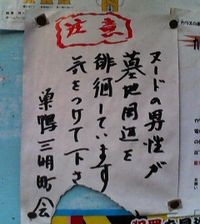 注意
ヌードの男性が
墓地周辺を
徘徊しています
気をつけて下さ
巣鴨三丁町会